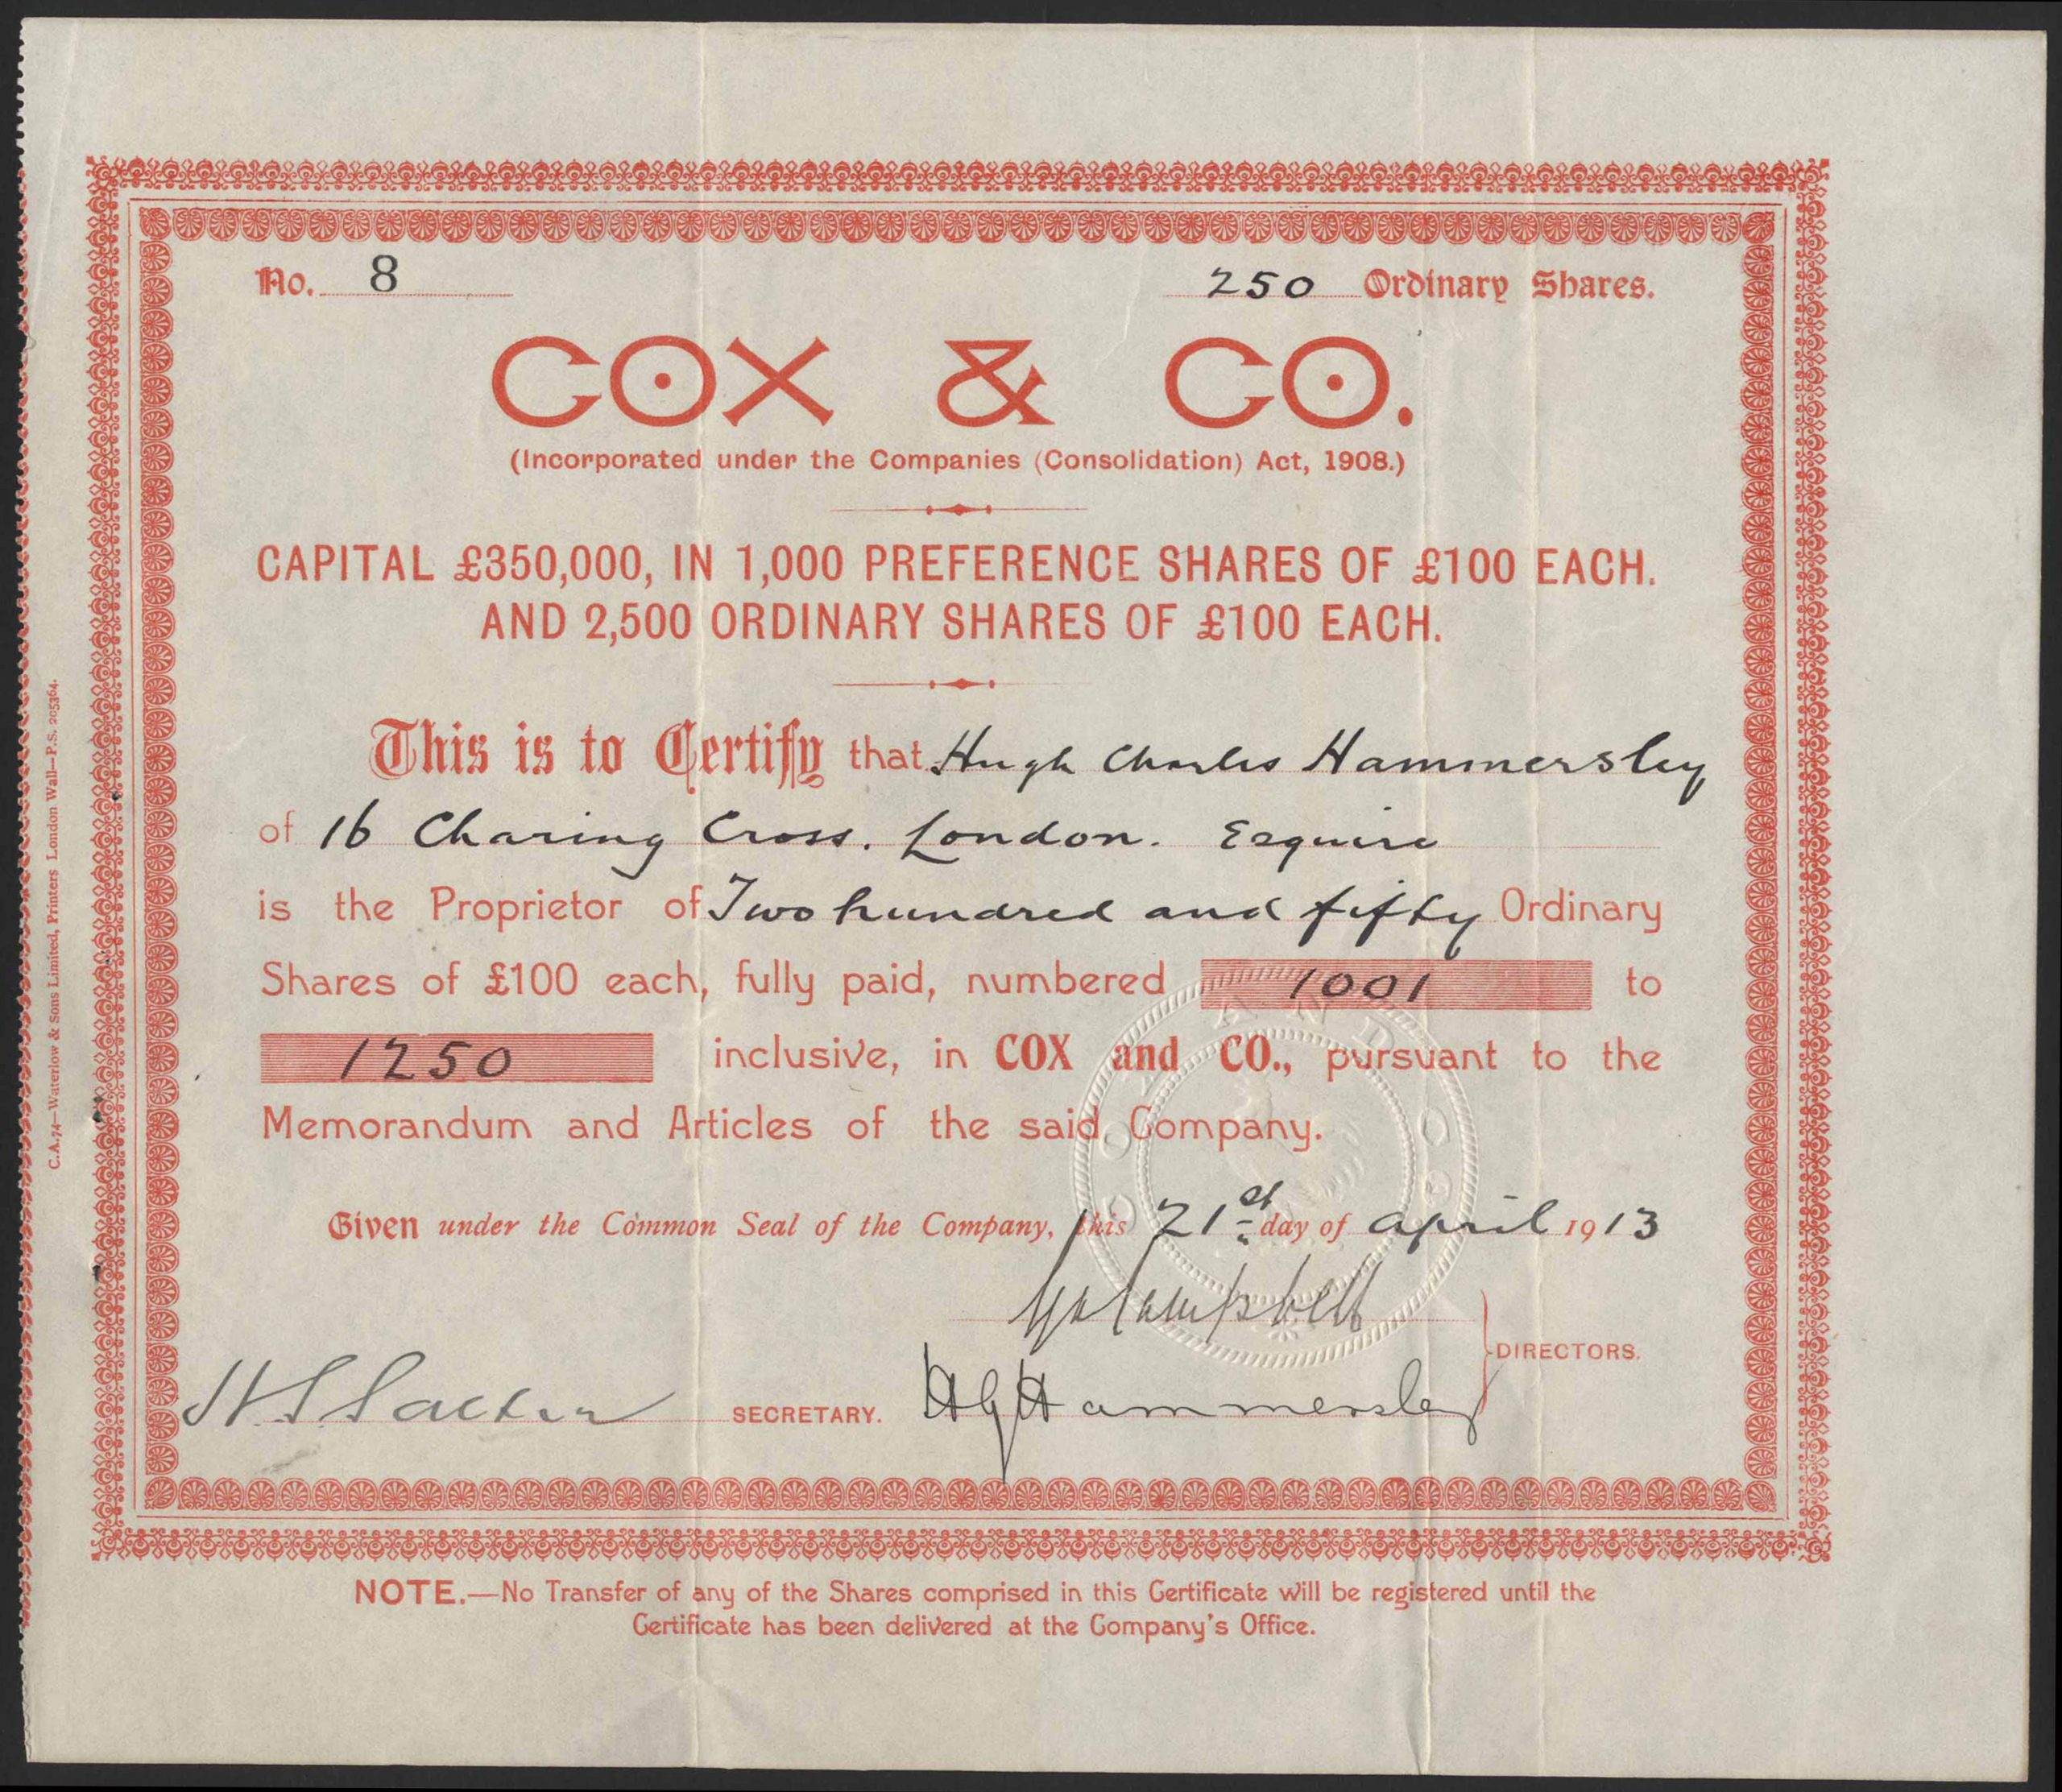 No. 8
250 Ordinary Shares.
COX & CO.
(Incorporated under the Companies (Consolidation) Act, 1908.)
CAPITAL £350,000, IN 1,000 PREFERENCE SHARES OF £100 EACH.
AND 2,500 ORDINARY SHARES OF £100 EACH.
This is to Certify that Hugh Charles Hammersley
of 16 Charing Cross. London. Esquire
is the Proprietor of Two hundred and fifty Ordinary
Shares of £100 each, fully paid, numbered 1001 to
1250 inclusive, in COX and CO., pursuant to the
Memorandum and Articles of the said Company.
Given under the Common Seal of the Company, this 21st day of April 1913
Campbell
DIRECTORS.
SECRETARY. Hammersley
NOTE.—No Transfer of any of the Shares comprised in this Certificate will be registered until the
Certificate has been delivered at the Company's Office.
C.A.74—Waterlow & Sons Limited, Printers London Wall—P.S. 205364.
COX AND CO